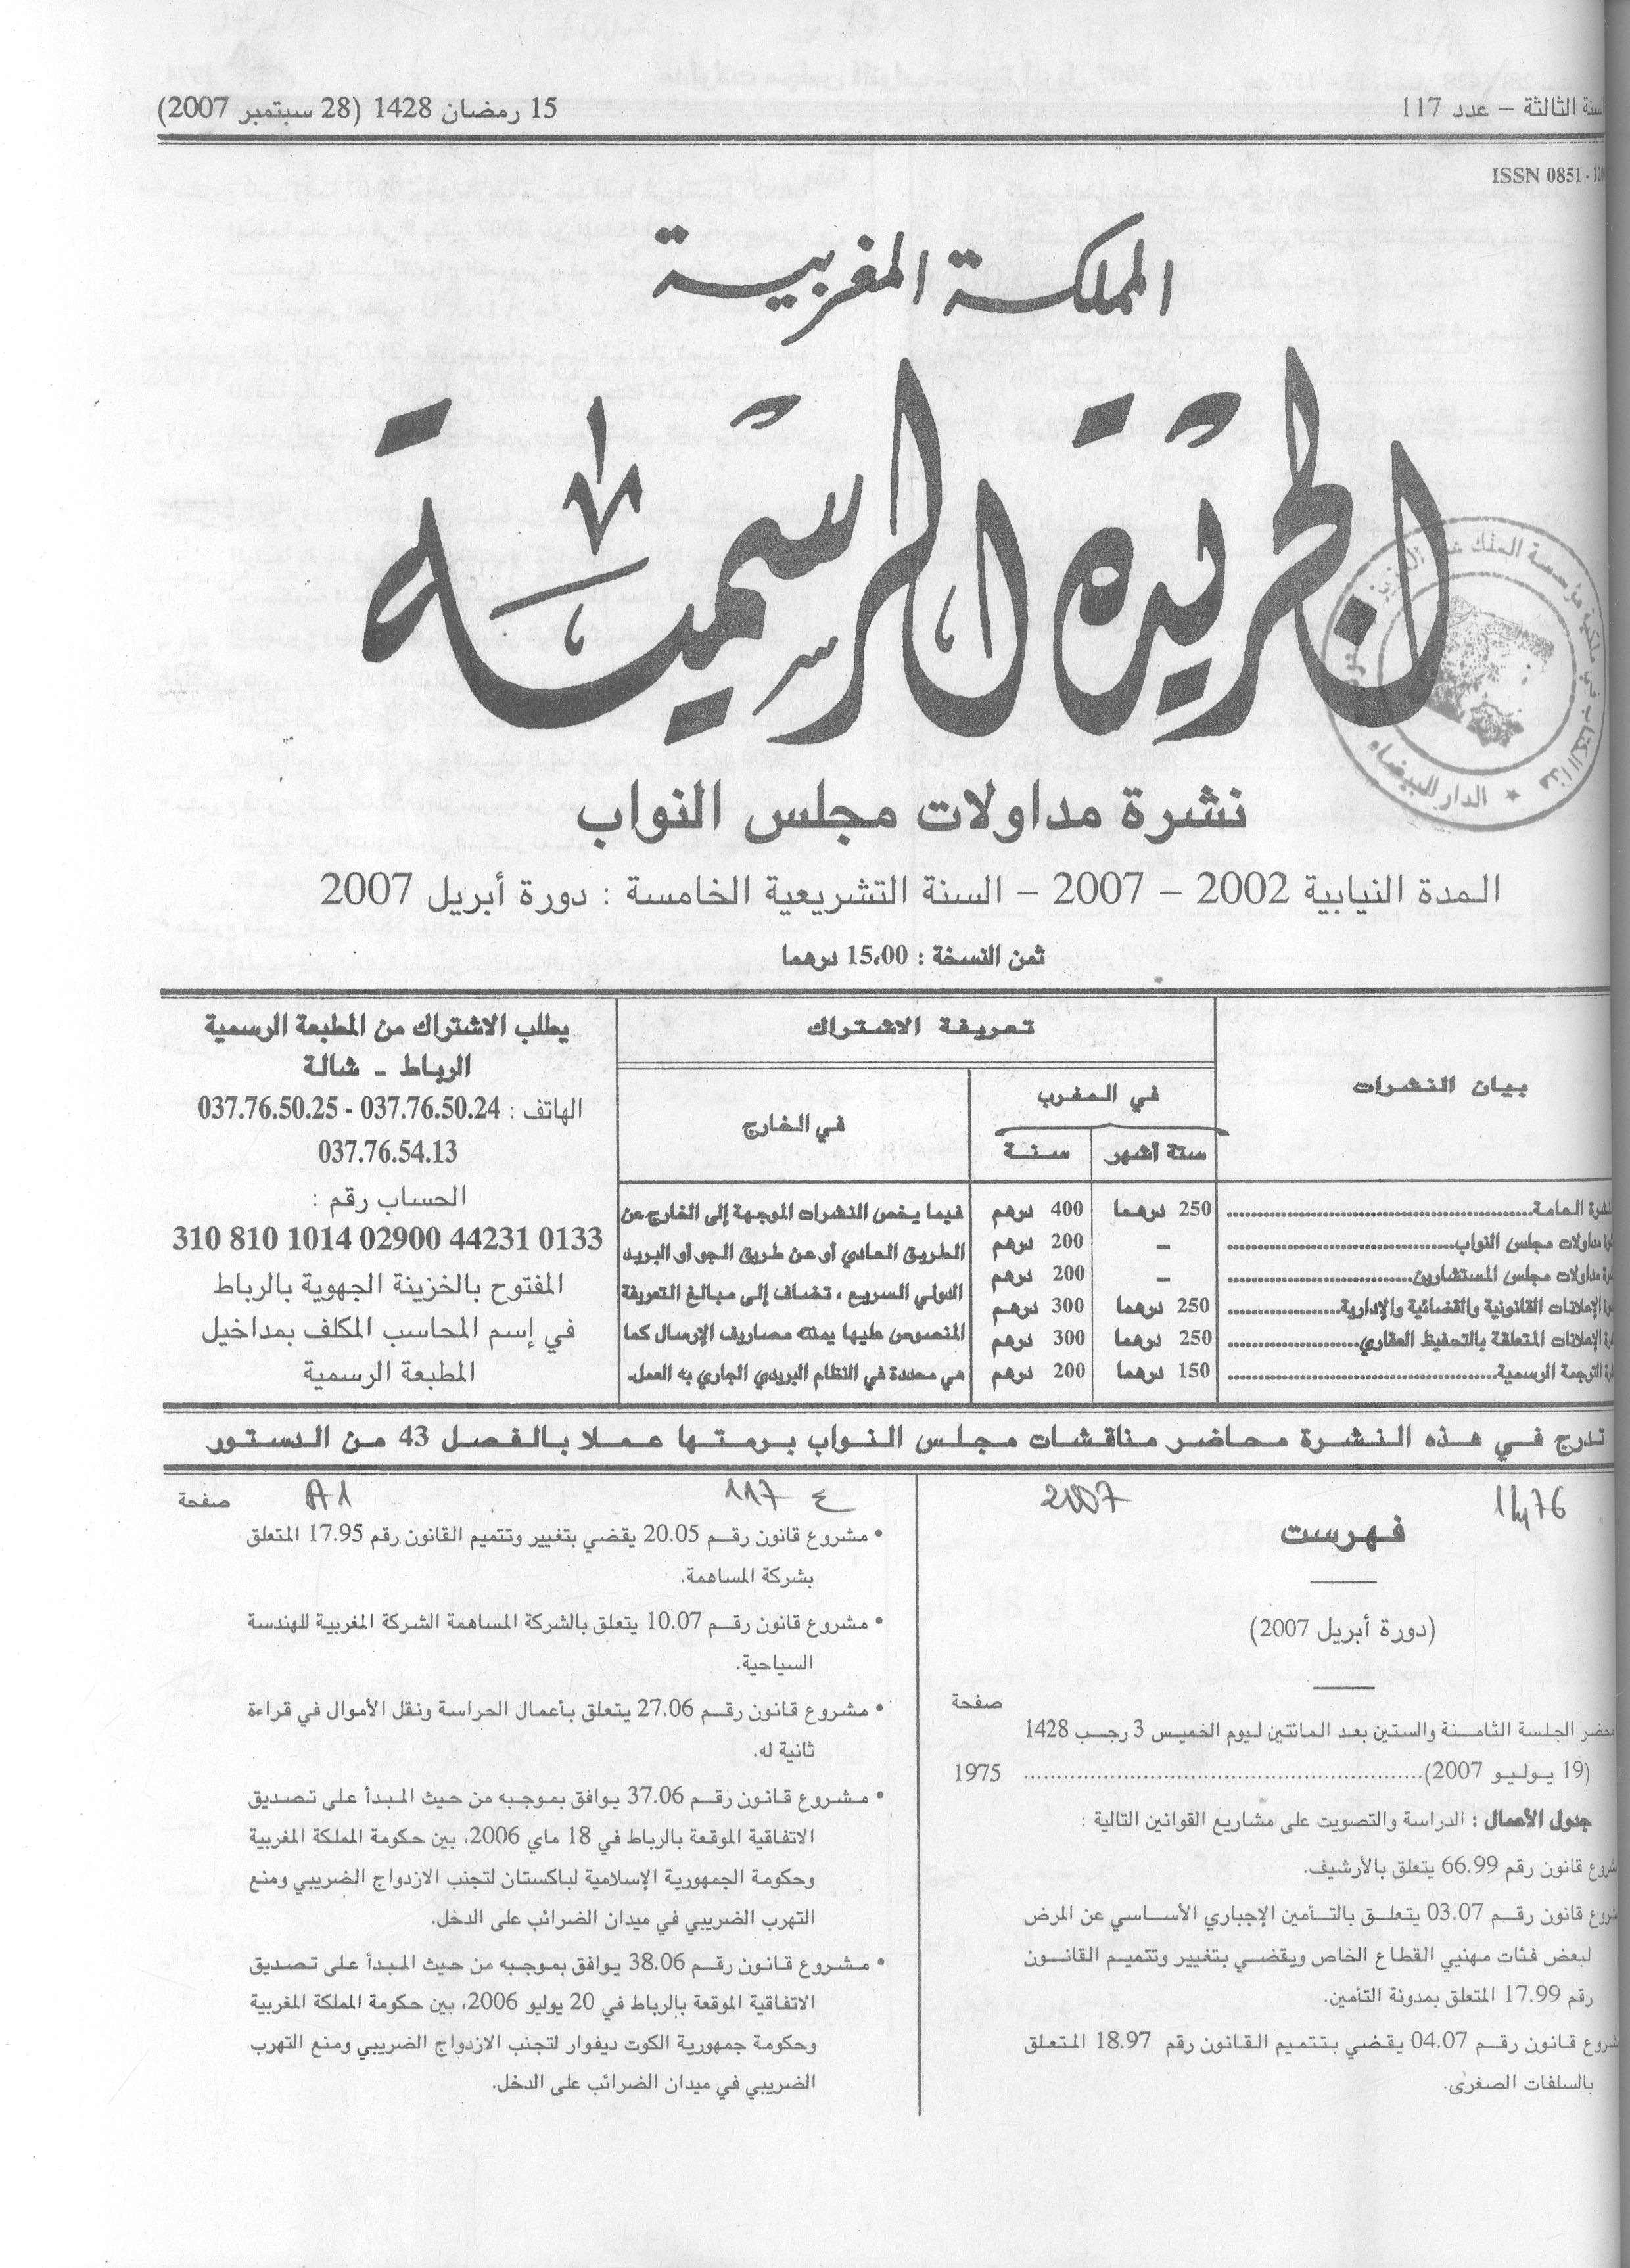 السنة الثالثة – عدد 117
15 رمضان 1428 (28 سبتمبر 2007)
ISSN 0851 -
المملكة المغربية
الجريدة الرسمية
نشرة مداولات مجلس النواب
المدة النيابية 2002 – 2007 – السنة التشريعية الخامسة : دورة أبريل 2007
ثمن النسخة : 15,00 درهما
بيان النشرات
تعريفة الاشتراك
في المغرب
في الخارج
ستة أشهر
سنة
النشرة العامة
250 درهما
400 درهم
نشرة مداولات مجلس النواب
–
200 درهم
نشرة مداولات مجلس المستشارين
–
200 درهم
نشرة الإعلانات القانونية والقضائية والإدارية
250 درهما
300 درهم
نشرة الإعلانات المتعلقة بالتحفيظ العقاري
250 درهما
300 درهم
نشرة الترجمة الرسمية
150 درهما
200 درهم
فيما يخص النشرات الموجهة إلى الخارج عن
الطريق العادي أو عن طريق الجو أو البريد
الدولي السريع ، تضاف إلى مبالغ التعريفة
المنصوص عليها يمنته مصاريف الإرسال كما
هي محددة في النظام البريدي الجاري به العمل.
يطلب الاشتراك من المطبعة الرسمية
الرباط - شالة
الهاتف : 037.76.50.24 - 037.76.50.25
037.76.54.13
الحساب رقم :
310 810 1014 02900 44231 0133
المفتوح بالخزينة الجهوية بالرباط
في إسم المحاسب المكلف بمداخيل
المطبعة الرسمية
تدرج في هذه النشرة محاضر مناقشات مجلس النواب برمتها عملا بالفصل 43 من الدستور
2007
ع 117
A1
فهرست
(دورة أبريل 2007)
صفحة
محضر الجلسة الثامنة والستين بعد المائتين ليوم الخميس 3 رجب 1428
(19 يوليو 2007)........ 1975
جدول الأعمال : الدراسة والتصويت على مشاريع القوانين التالية :
مشروع قانون رقم 66.99 يتعلق بالأرشيف.
مشروع قانون رقم 03.07 يتعلق بالتأمين الإجباري الأساسي عن المرض
لبعض فئات مهنيي القطاع الخاص ويقضي بتغيير وتتميم القانون
رقم 17.99 المتعلق بمدونة التأمين.
مشروع قانون رقم 04.07 يقضي بتتميم القانون رقم 18.97 المتعلق
بالسلفات الصغرى.
صفحة
• مشروع قانون رقم 20.05 يقضي بتغيير وتتميم القانون رقم 17.95 المتعلق
بشركة المساهمة.
• مشروع قانون رقم 10.07 يتعلق بالشركة المساهمة الشركة المغربية للهندسة
السياحية.
• مشروع قانون رقم 27.06 يتعلق بأعمال الحراسة ونقل الأموال في قراءة
ثانية له.
• مشروع قانون رقم 37.06 يوافق بموجبه من حيث المبدأ على تصديق
الاتفاقية الموقعة بالرباط في 18 ماي 2006، بين حكومة المملكة المغربية
وحكومة الجمهورية الإسلامية لباكستان لتجنب الازدواج الضريبي ومنع
التهرب الضريبي في ميدان الضرائب على الدخل.
• مشروع قانون رقم 38.06 يوافق بموجبه من حيث المبدأ على تصديق
الاتفاقية الموقعة بالرباط في 20 يوليو 2006، بين حكومة المملكة المغربية
وحكومة جمهورية الكوت ديفوار لتجنب الازدواج الضريبي ومنع التهرب
الضريبي في ميدان الضرائب على الدخل.
هذا الكتاب في ملكية مؤسسة الملك عبد العزيز
الدار البيضاء